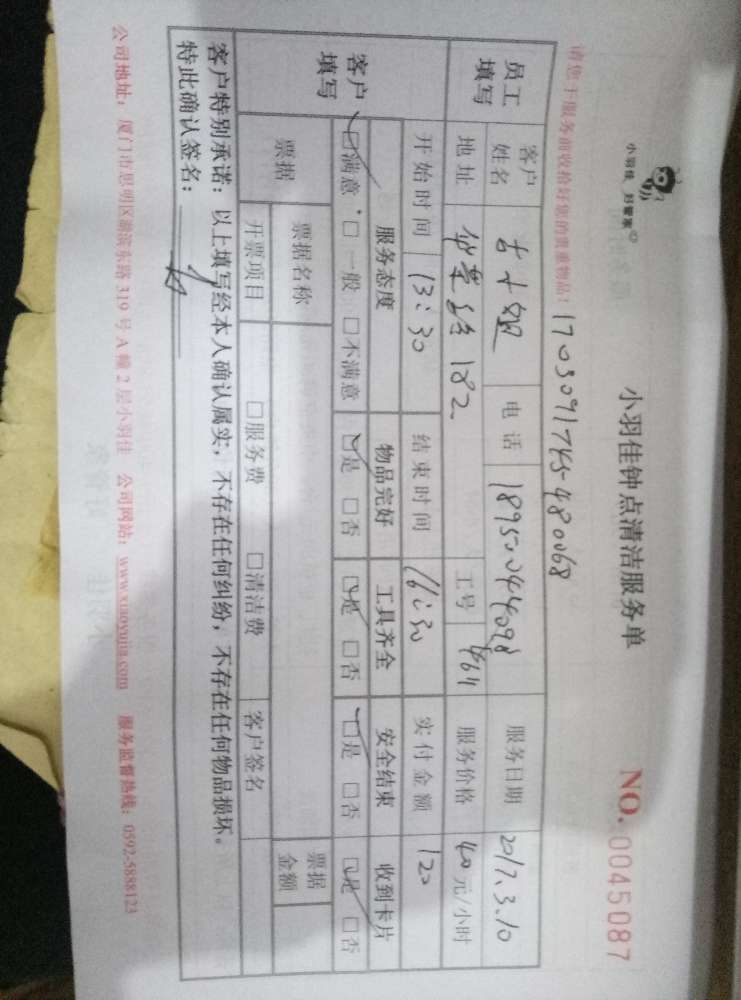 小羽佳 好管家
小羽佳钟点清洁服务单
NO. 0045087
请您于服务前收拾好您的贵重物品!
1703091745-480068
员工填写
客户姓名
电话 18950044098
服务日期 2017.3.10
地址 182
工号 4611
服务价格 40元/小时
开始时间 13:30
结束时间 16:30
实付金额 120
客户填写
服务态度 物品完好 工具齐全 安全结束 收到卡片
☑满意 □一般 □不满意 ☑是 □否 ☑是 □否 ☑是 □否 ☑是 □否
票据
票据名称
票据金额
开票项目 □服务费 □清洁费 客户签名
客户特别承诺:以上填写经本人确认属实,不存在任何纠纷,不存在任何物品损坏。
特此确认签名:
公司地址:厦门市思明区湖滨东路319号A幢2层小羽佳 公司网站:www.xiaoyujia.com 服务监督热线:0592-5888123